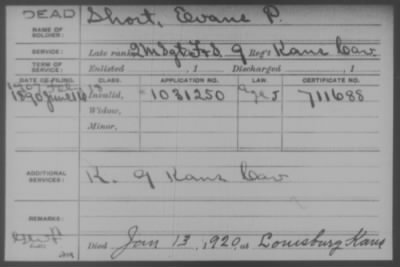 DEAD
NAME OF SOLDIER: Short, Evans P.
SERVICE: Late rank, 2 M Sgt F&S. 9 Reg't Kans Cav.
TERM OF SERVICE: Enlisted , 1 Discharged , 1
DATE OF FILING. CLASS. APPLICATION NO. LAW. CERTIFICATE NO.
1907 Feb. 18
1890 June 16 Invalid, 1031250 ages 711688
Widow,
Minor,
ADDITIONAL SERVICES: K. 9 Kans Cav
REMARKS:
Died Jan 13, 1920, at Louisburg Kans